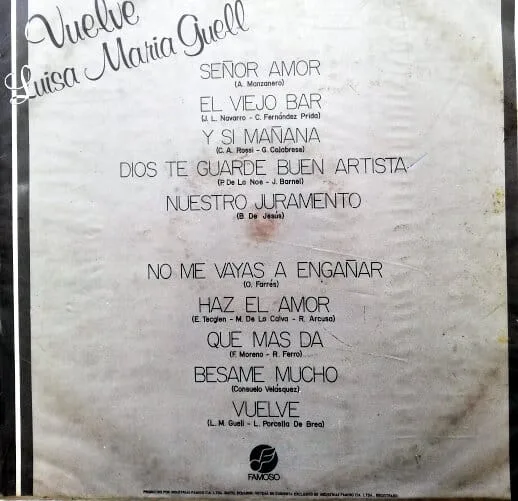 Vuelve
Luisa Maria Guell
SEÑOR AMOR
(A. Manzanero)
EL VIEJO BAR
(J. L. Navarro - C. Fernández Prida)
Y SI MAÑANA
(C. A. Rossi - G. Calabrese)
DIOS TE GUARDE BUEN ARTISTA
(P. De La Noe - J. Barnel)
NUESTRO JURAMENTO
(B. De Jesús)
NO ME VAYAS A ENGAÑAR
(O. Farrés)
HAZ EL AMOR
(E. Tecglen - M. De La Calva - R. Arcusa)
QUE MAS DA
(F. Moreno - R. Ferro)
BESAME MUCHO
(Consuelo Velásquez)
VUELVE
(L. M. Guell - L. Porcella De Brea)
FAMOSO
PRODUCIDO POR INDUSTRIAS FAMOSO CIA. LTDA.